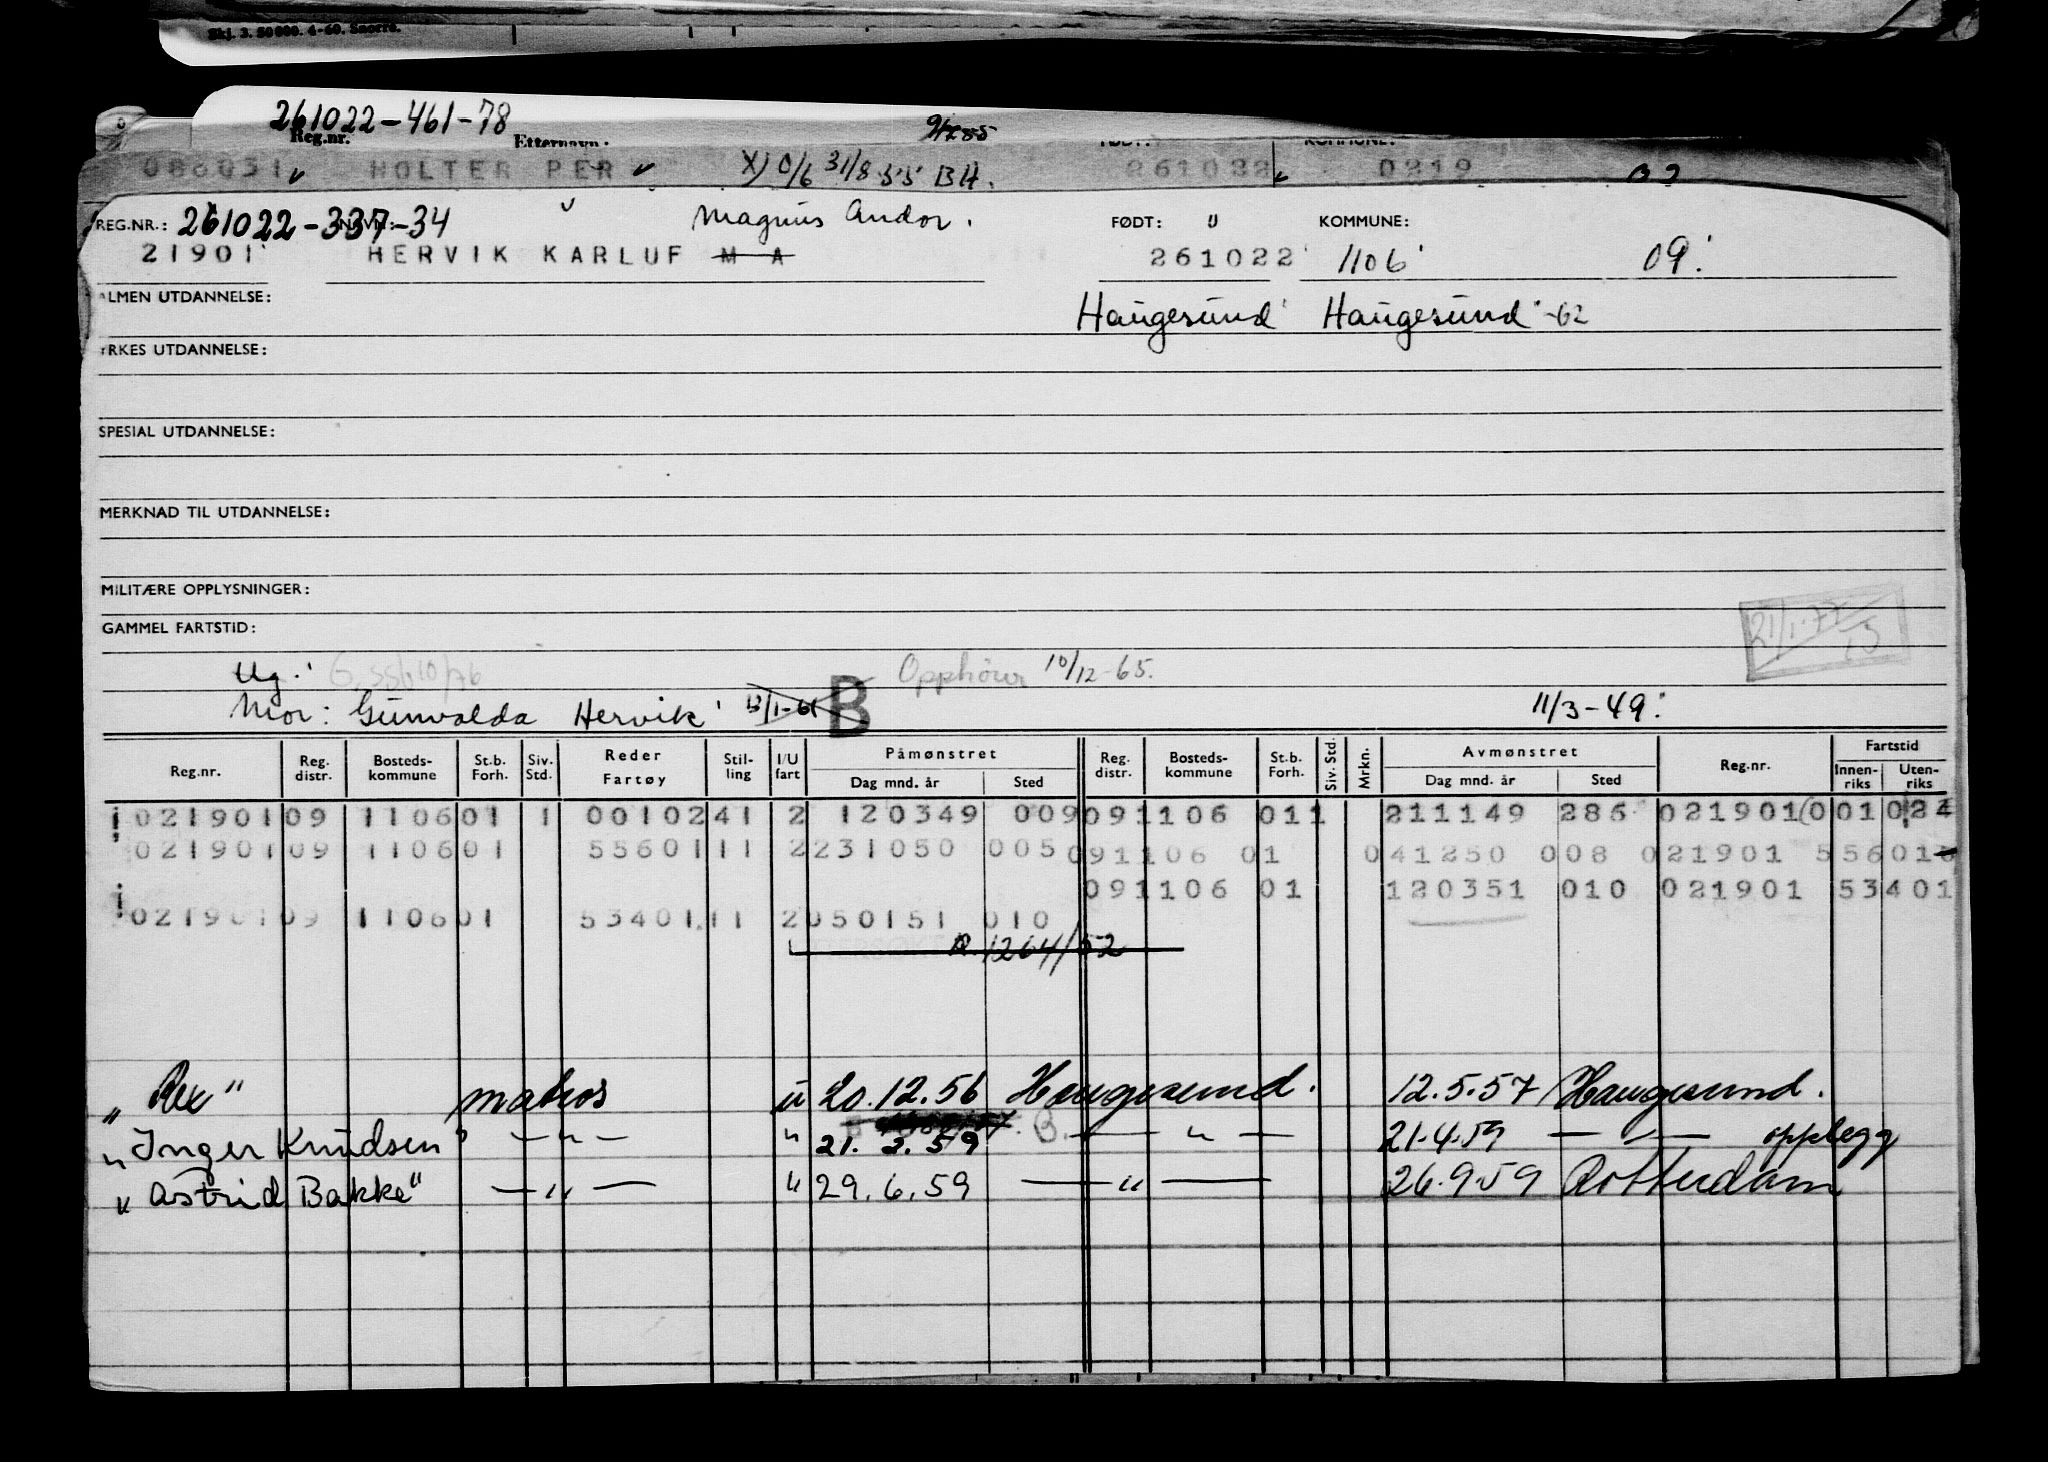 Skj. 3. 50 000. 4-60. Snorre.
261022-461-78
Reg.nr. Etternavn:
086031 HOLTER PER X) 0/6 31/8 55 BH. 261022 0219
REG.NR.: 261022-337-34 Magnus Andor. FØDT: KOMMUNE:
21901 HERVIK KARLUF M A 261022 1106 09
ALMEN UTDANNELSE: Haugesund Haugesund -62
YRKES UTDANNELSE:
SPESIAL UTDANNELSE:
MERKNAD TIL UTDANNELSE:
MILITÆRE OPPLYSNINGER:
GAMMEL FARTSTID:
21/1-77
Ug. Opphører 10/12-65.
Mor: Gunvalda Hervik 13/1-61 B 11/3-49
Reg.nr. Reg. distr. Bosteds-kommune St.b. Forh. Siv. Std. Reder Fartøy Stil-ling I/U fart Påmønstret Dag mnd. år Sted Reg. distr. Bosteds-kommune St.b. Forh. Siv. Std. Mrkn. Avmønstret Dag mnd. år Sted Reg.nr. Fartstid Innen-riks Uten-riks
021901 09 1106 01 1 00102 41 2 120349 009 09 1106 01 1 211149 286 021901
021901 09 1106 01 55601 11 2 231050 005 091106 01 041250 008 021901 55601
091106 01 120351 010 021901 53401
021901 09 1106 01 53401 11 2 050151 010
R. 1264/52
„Rex" matros u 20.12.56 Haugesund. 12.5.57 Haugesund.
„Inger Knudsen" —„— " 21. 2. 59 —„— 21.4.59 —„— opplegg
„Astrid Bakke" —„— " 29.6.59 —„— 26.9.59 Rotterdam